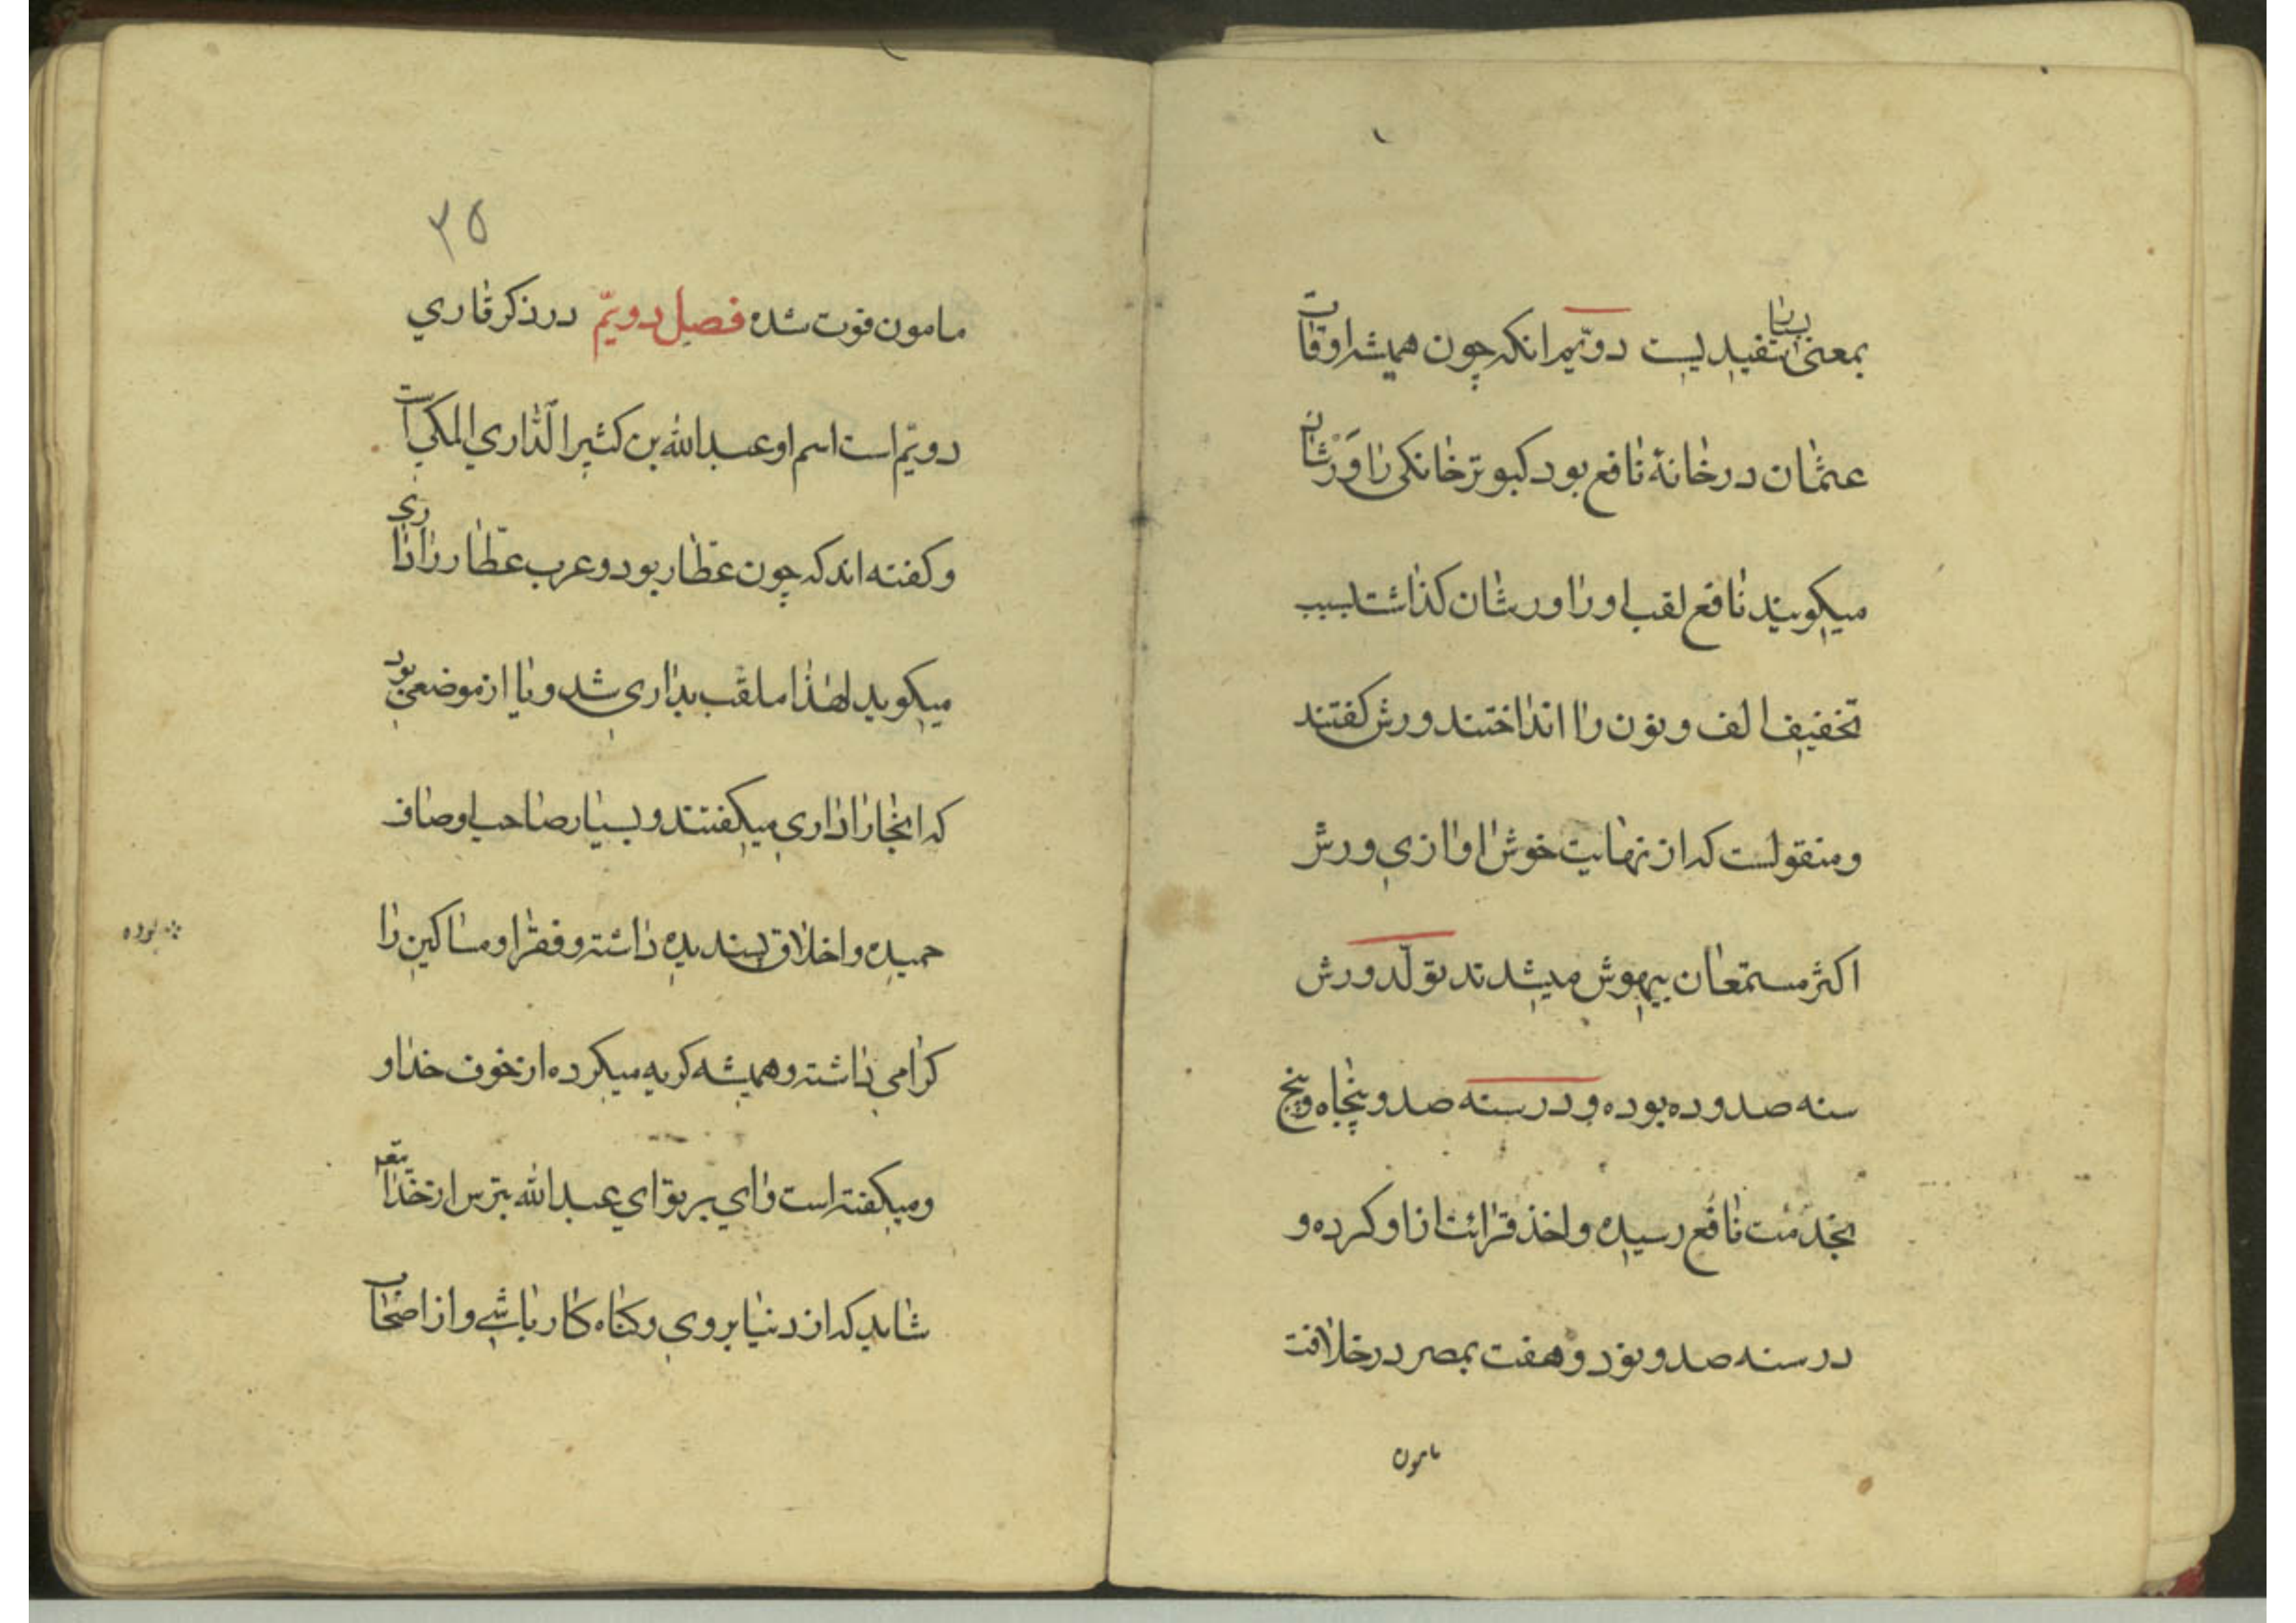 بمعنی بسیار سفیدیست دویّم انکه چون همیشه اوقات
عثمان در خانهٔ نافع بود کبوتر خانکی را وَرَشان
میکویند نافع لقب او را ورشان کذاشت بسبب
تخفیف الف و نون را انداختند ورش کفتند
و منقولست که از نهایت خوش اوازی ورش
اکثر مستمعان بیهوش میشدند تولّد ورش
سنه صد و ده بوده و در سنه صد و پنجاه و پنج
بخدمت نافع رسیده و اخذ قرائت از او کرده و
در سنه صد و نود و هفت بمصر در خلافت
مامون
۲۵
مامون فوت شده فصل دویّم در ذکر قاری
دویّم است اسم او عبدالله بن کثیر الدّاری المکی است
و کفته اند که چون عطّار بود و عرب عطّار را داری
میکوید لهذا ملقب بداری شد و یا از موضعی بود
که انجا را داری میکفتند و بسیار صاحب اوصاف
حمیده و اخلاق پسندیده داشته و فقرا و مساکین را
کرامی داشته و همیشه کریه میکرده از خوف خدا و
ومیکفته است وای بر تو ای عبدالله بترس از خدا
شاید که از دنیا بروی و کناه کار باشی و از اصحاب
بوده